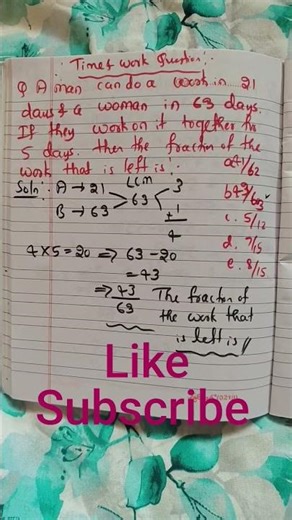 Time & work Question :-
Q A man can do a work in 21
days & a woman in 63 days.
If they work on it together for
5 days. then the fraction of the
work that is left is :-
a. 41/62
b. 43/63
c. 5/12
d. 7/15
e. 8/15
Soln:- A → 21
B → 63
LCM
63
3
+1
4
4 x 5 = 20 ⇒ 63 - 20
= 43
⇒ 43
63
The fraction of
the work that
is left is //
Like
Subscribe